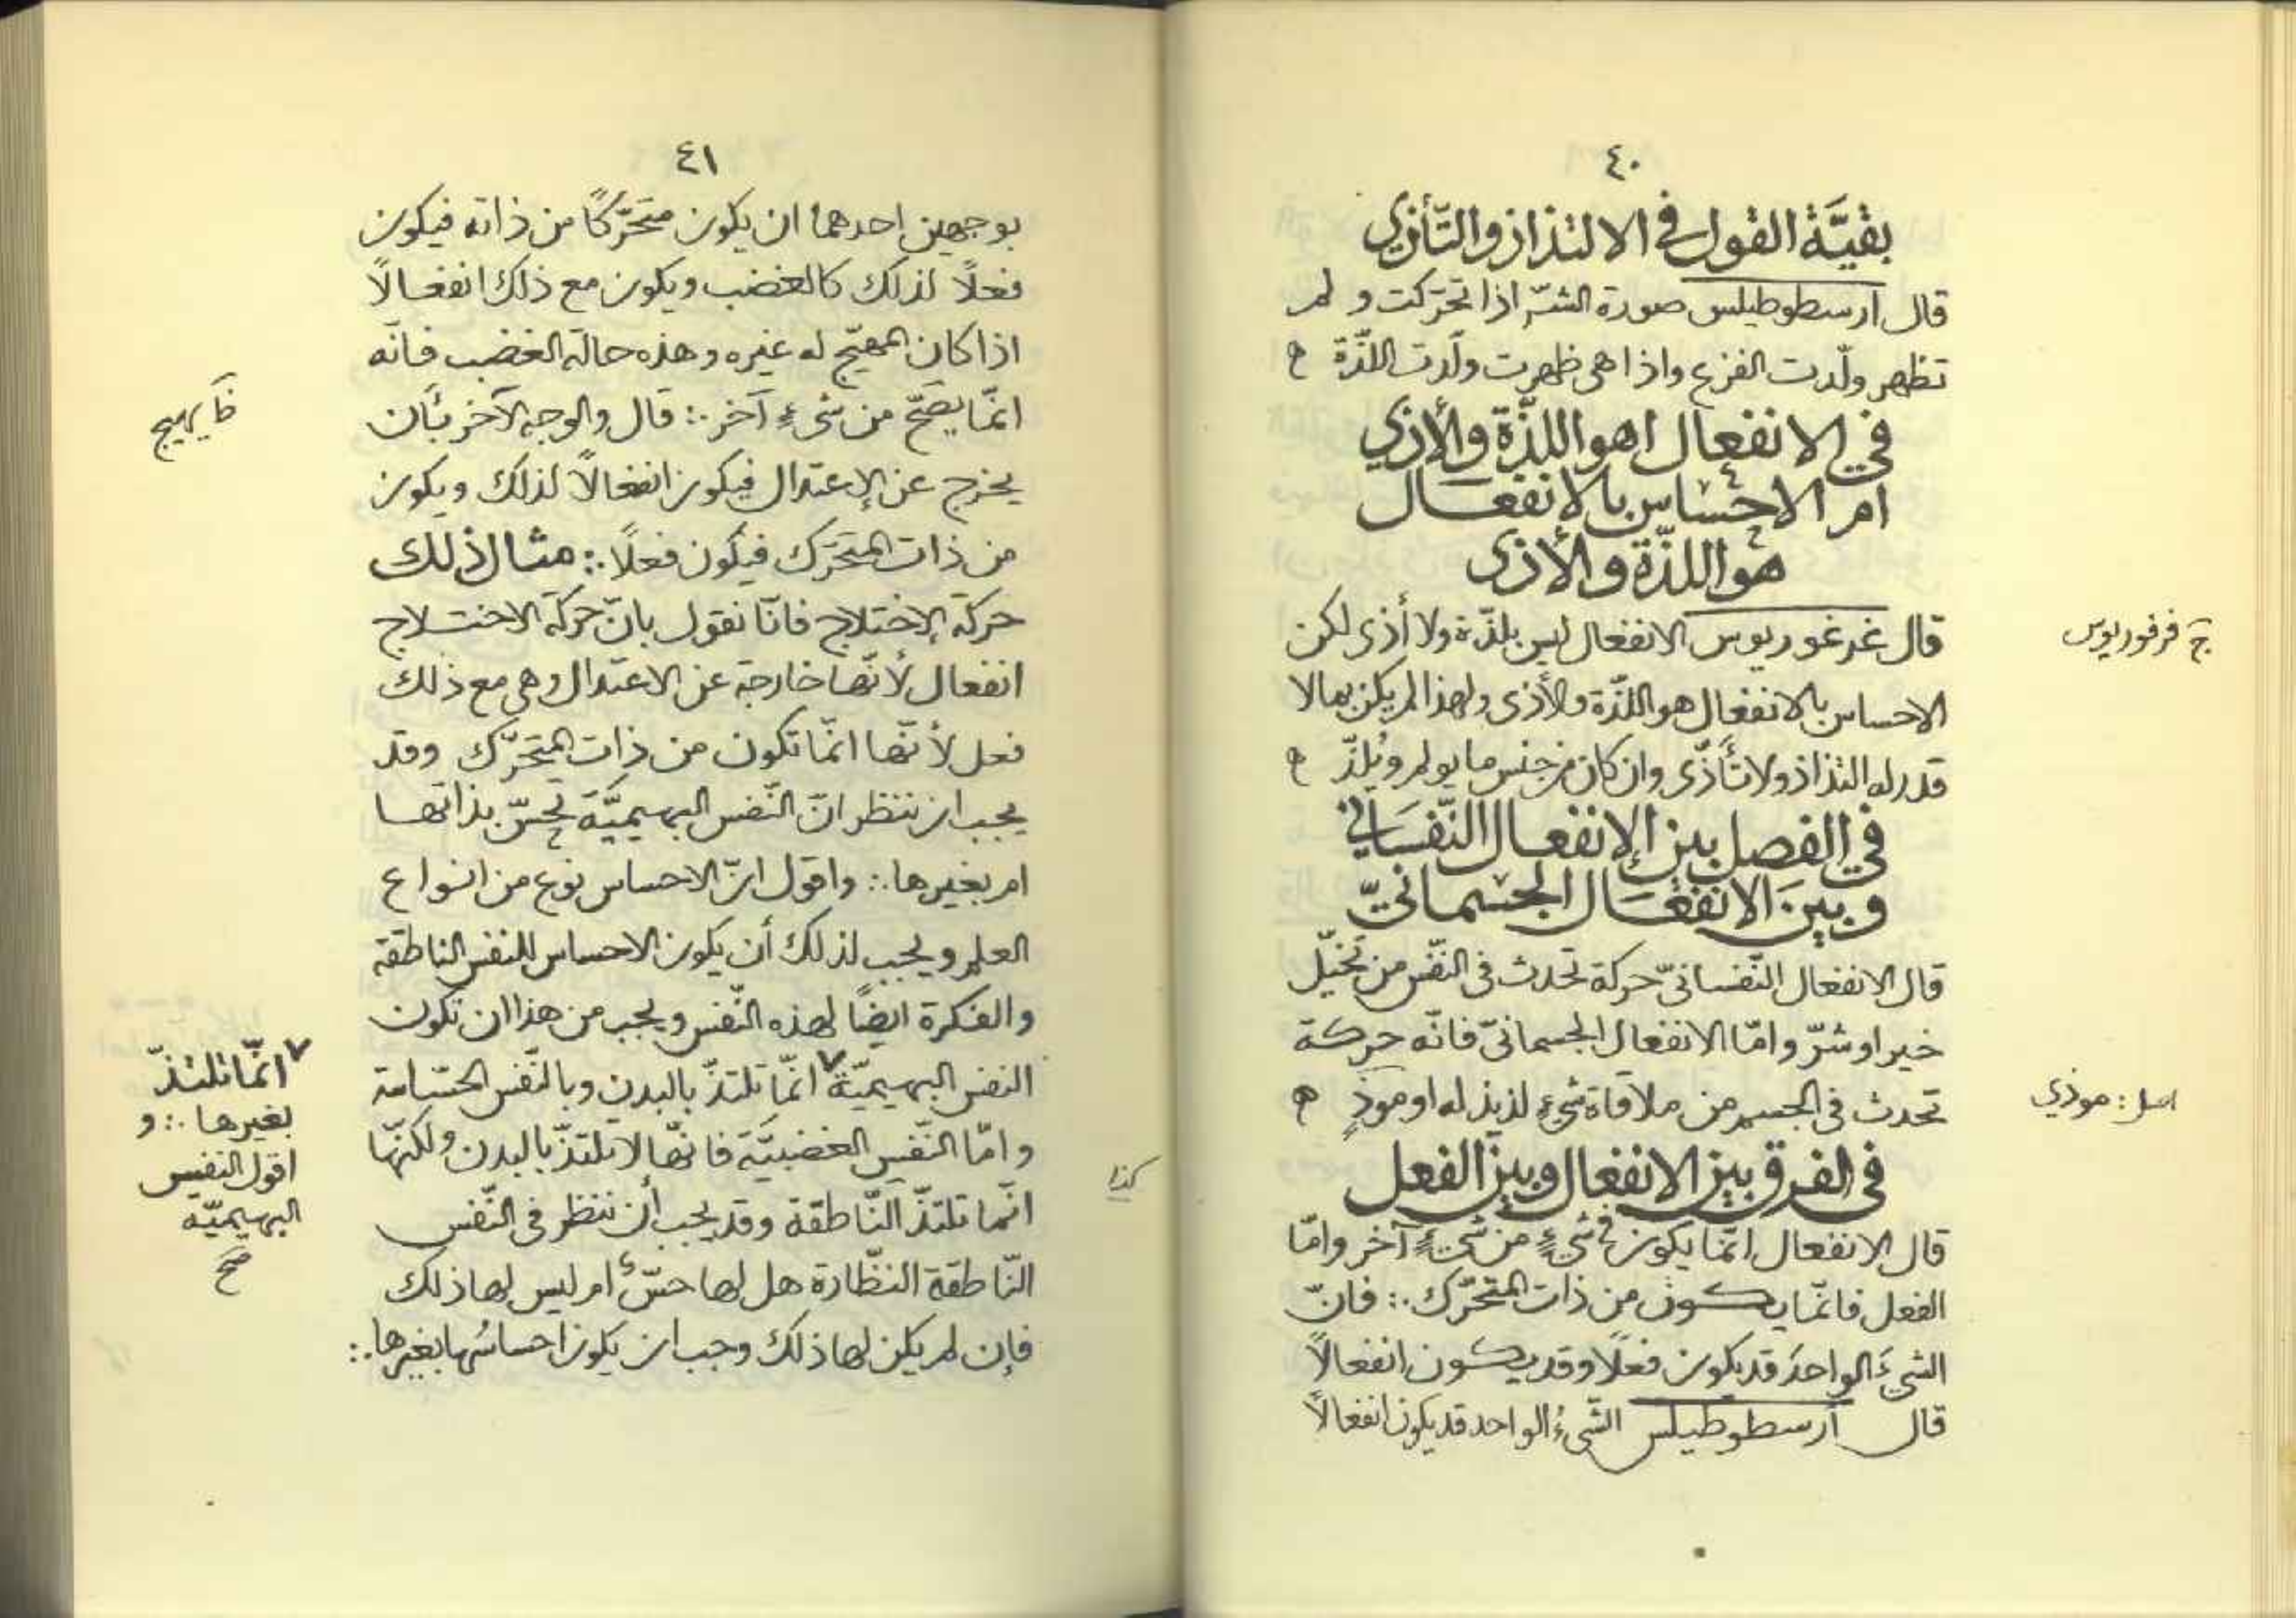 ٤٠
بقيّة القول في الالتذاذ والتّأذّي
قال أرسطوطيلس صورة الشرّ اذا تحرّكت و لم
تظهر ولّدت الفزع واذا هى ظهرت ولّدت اللذّة ه
في الانفعال اهو اللذّة والأذي
ام الاحساس بالانفعال
هو اللذّة والأذى
قال غرغوريوس الانفعال ليس بلذّة ولا أذى لكن
ج فرفوريوس
الاحساس بالانفعال هو اللذّة والأذى ولهذا لم يكن بما لا
قدر له التذاذ ولا تأذّى وان كان من جنس ما يولم ويُلذّ ه
في الفصل بين الإنفعال النّفسانى
و بين الانفعال الجسمانيّ
قال الانفعال النّفسانىّ حركة تحدث فى النّفس من تخيّل
خير او شرّ و امّا الانفعال الجسمانىّ فانّه حركة
تحدث فى الجسم من ملاقاة شيءٍ لذيذ له او موذٍ ه
اصل: موذي
فى الفرق بين الانفعال وبين الفعل
قال الانفعال انّما يكون فى شيءٍ من شيءٍ آخر وامّا
الفعل فانّما يكون من ذات المتحرّك ∴ فانّ
الشيءَ الواحدَ قد يكون فعلًا وقد يكون انفعالًا
قال أرسطوطيلس الشّىءُ الواحد قد يكون انفعالًا
٤١
بوجهين احدهما ان يكون متحرّكًا من ذاته فيكون
فعلًا لذلك كالغضب ويكون مع ذلك انفعالًا
اذا كان المهيّج له غيره وهذه حالة الغضب فانّه
انّما يصحّ من شىءٍ آخر ∴ قال والوجه الآخر بأن
ظ يهيج
يخرج عن الإعتدال فيكون انفعالًا لذلك ويكون
من ذات المتحرّك فيكون فعلًا ∴ مثال ذلك
حركة الإختلاج فانّا نقول بانّ حركة الاختلاج
انفعال لأنّها خارجة عن الاعتدال وهى مع ذلك
فعل لأنّها انّما تكون من ذات المتحرّك وقد
يجب ان ننظر انّ النّفس البهيميّة تحسّ بذاتها
ام بغيرها ∴ واقول انّ الاحساس نوع من انواع
العلم ويجب لذلك أن يكون الاحساس للنفس الناطقة
والفكرة ايضًا لهذه النّفس ويجب من هذا ان تكون
النفس البهيميّة ٧ انّما تلتذّ بالبدن وبالنّفس الحسّاسة
٧ انّما تلتذّ
بغيرها ∴ و
اقول النفس
البهيميّة
صح
وامّا النّفس الغضبيّة فانّها لا تلتذّ بالبدن ولكنّها
كذا
انّما تلتذّ النّاطقة وقد يجب أن ننظر فى النّفس
النّاطقة النظّارة هل لها حسّ ام ليس لها ذلك
فإن لم يكن لها ذلك وجب ان يكون احساسُها بغيرها ∴